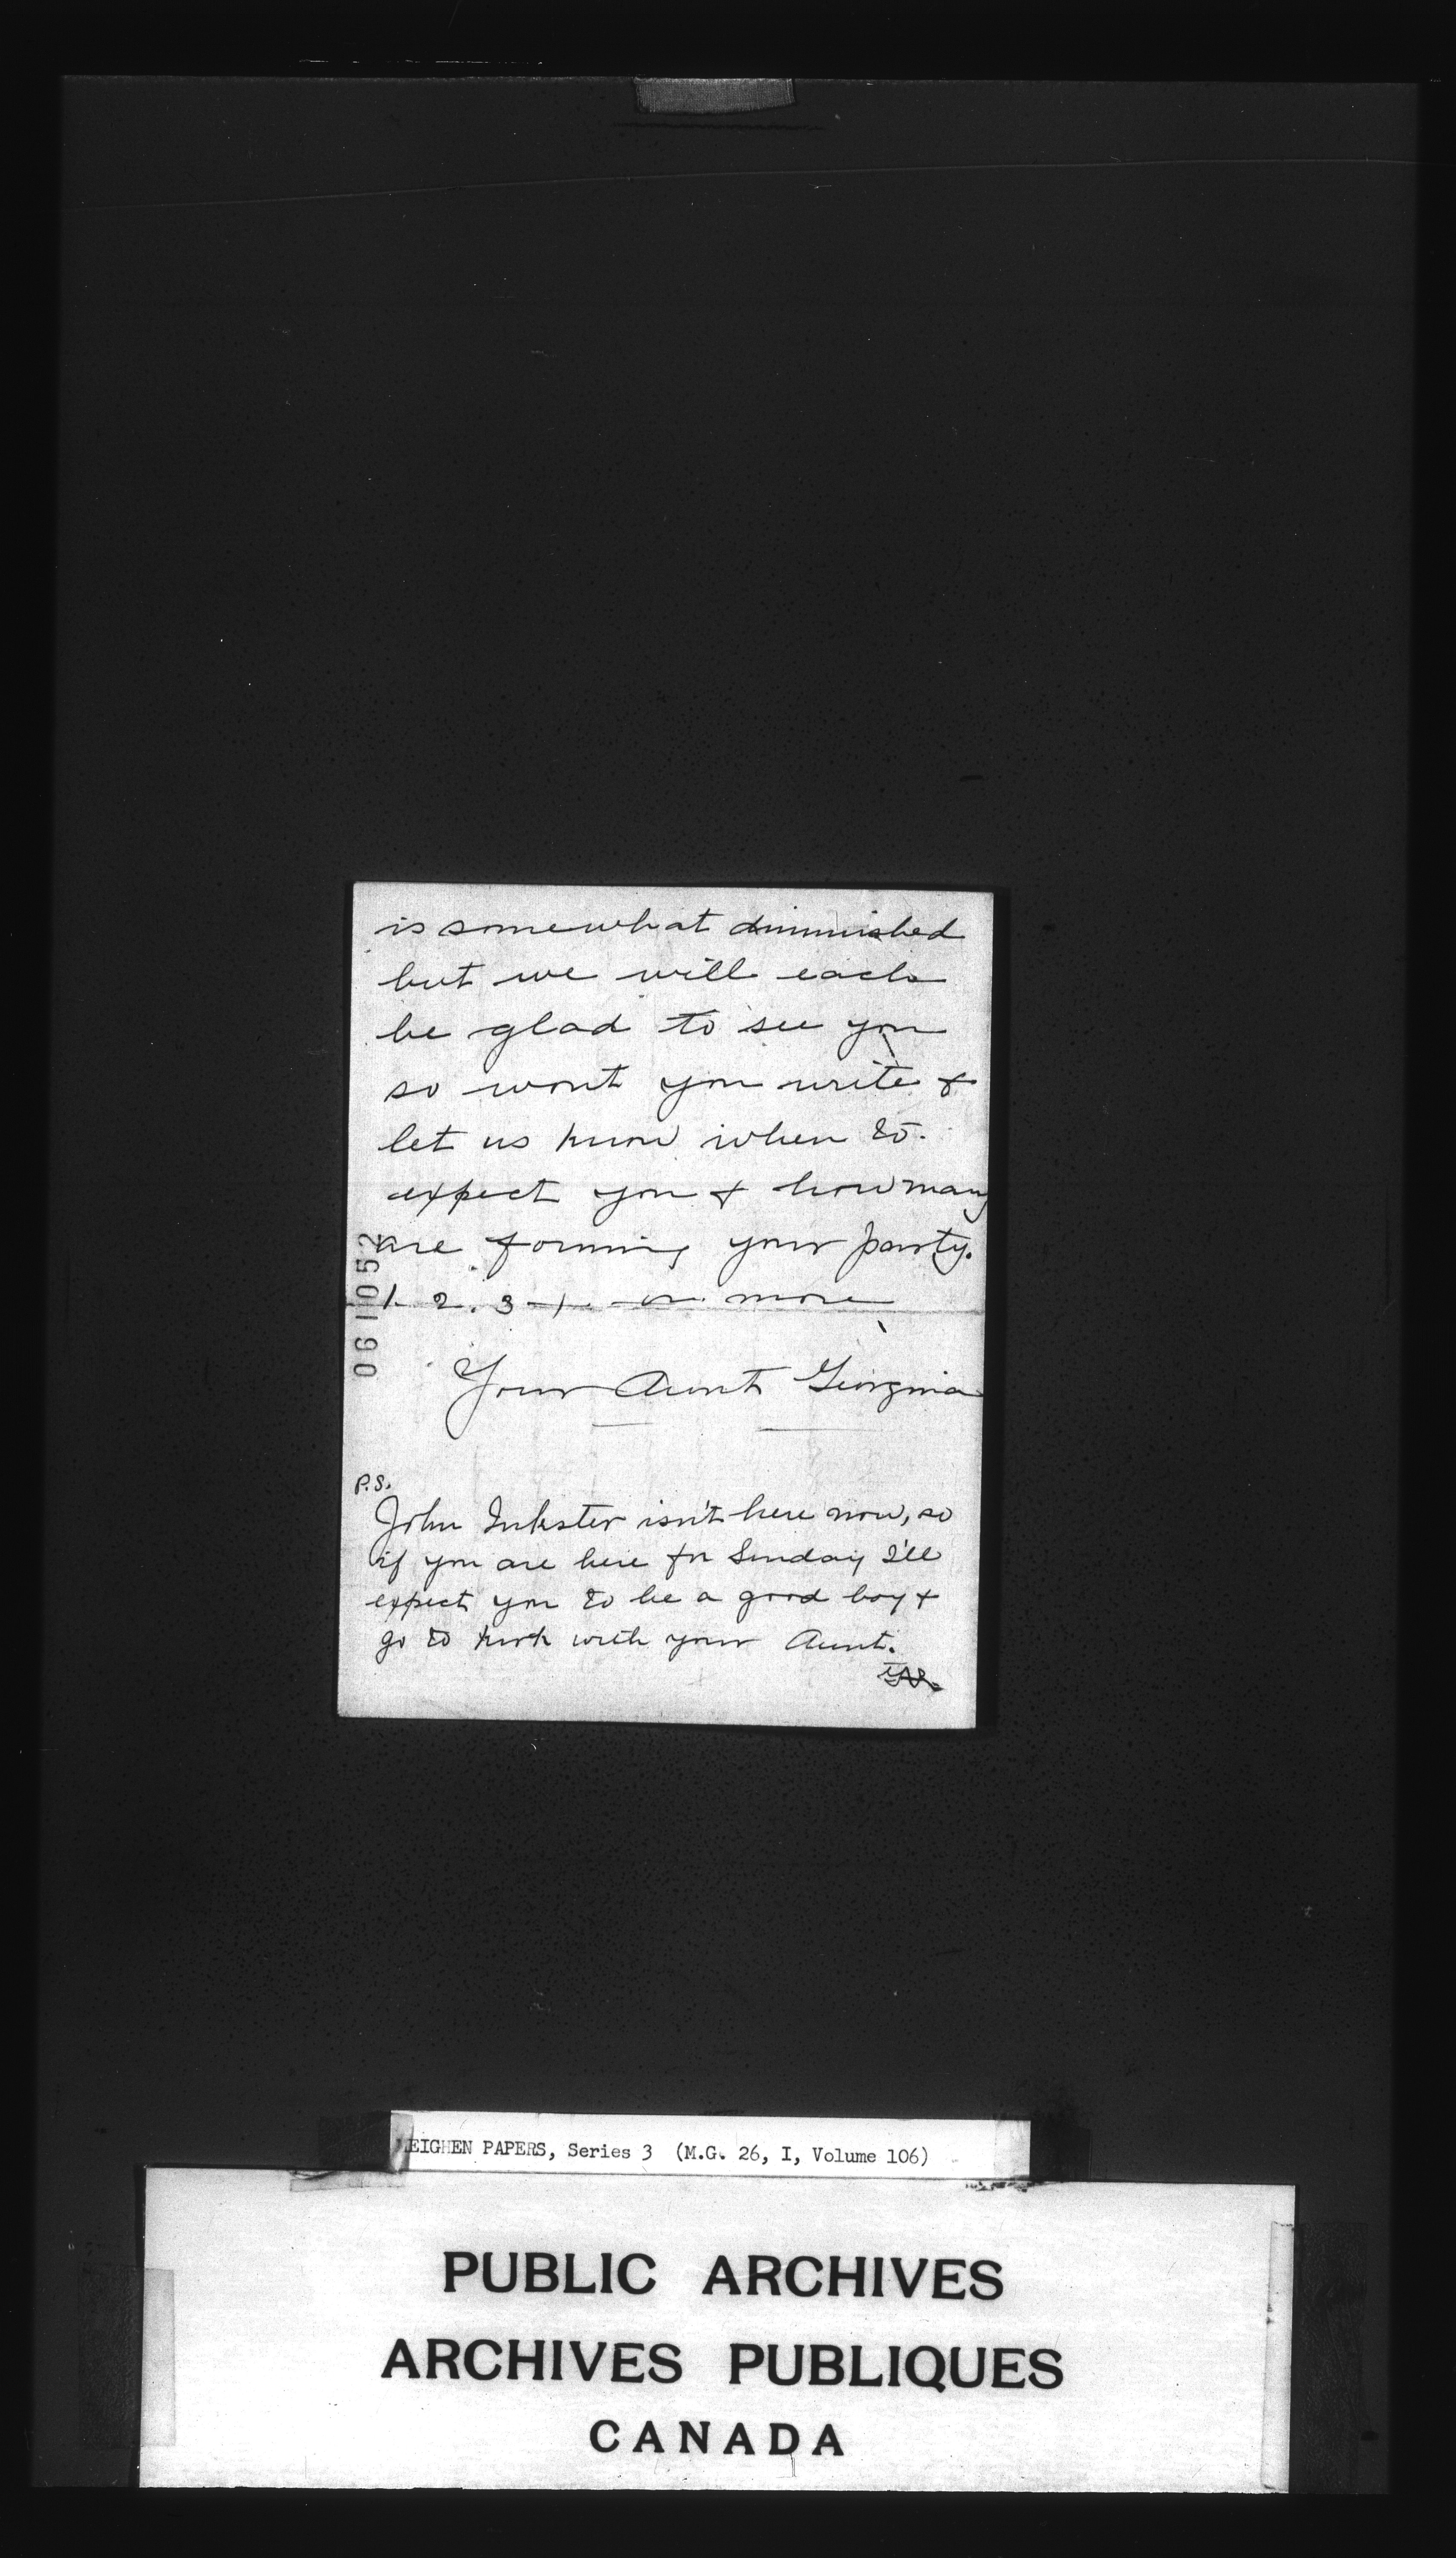 is somewhat diminished
but we will each
be glad to see you
so wont you write &
let us know when to
expect you & how many
are forming your party.
1. 2. 3 or more
Your Aunt Georgina
P.S.
John Inkster isn't here now, so
if you are here for Sunday I'll
expect you to be a good boy &
go to kirk with your Aunt.
061052
MEIGHEN PAPERS, Series 3 (M.G. 26, I, Volume 106)
PUBLIC ARCHIVES
ARCHIVES PUBLIQUES
CANADA